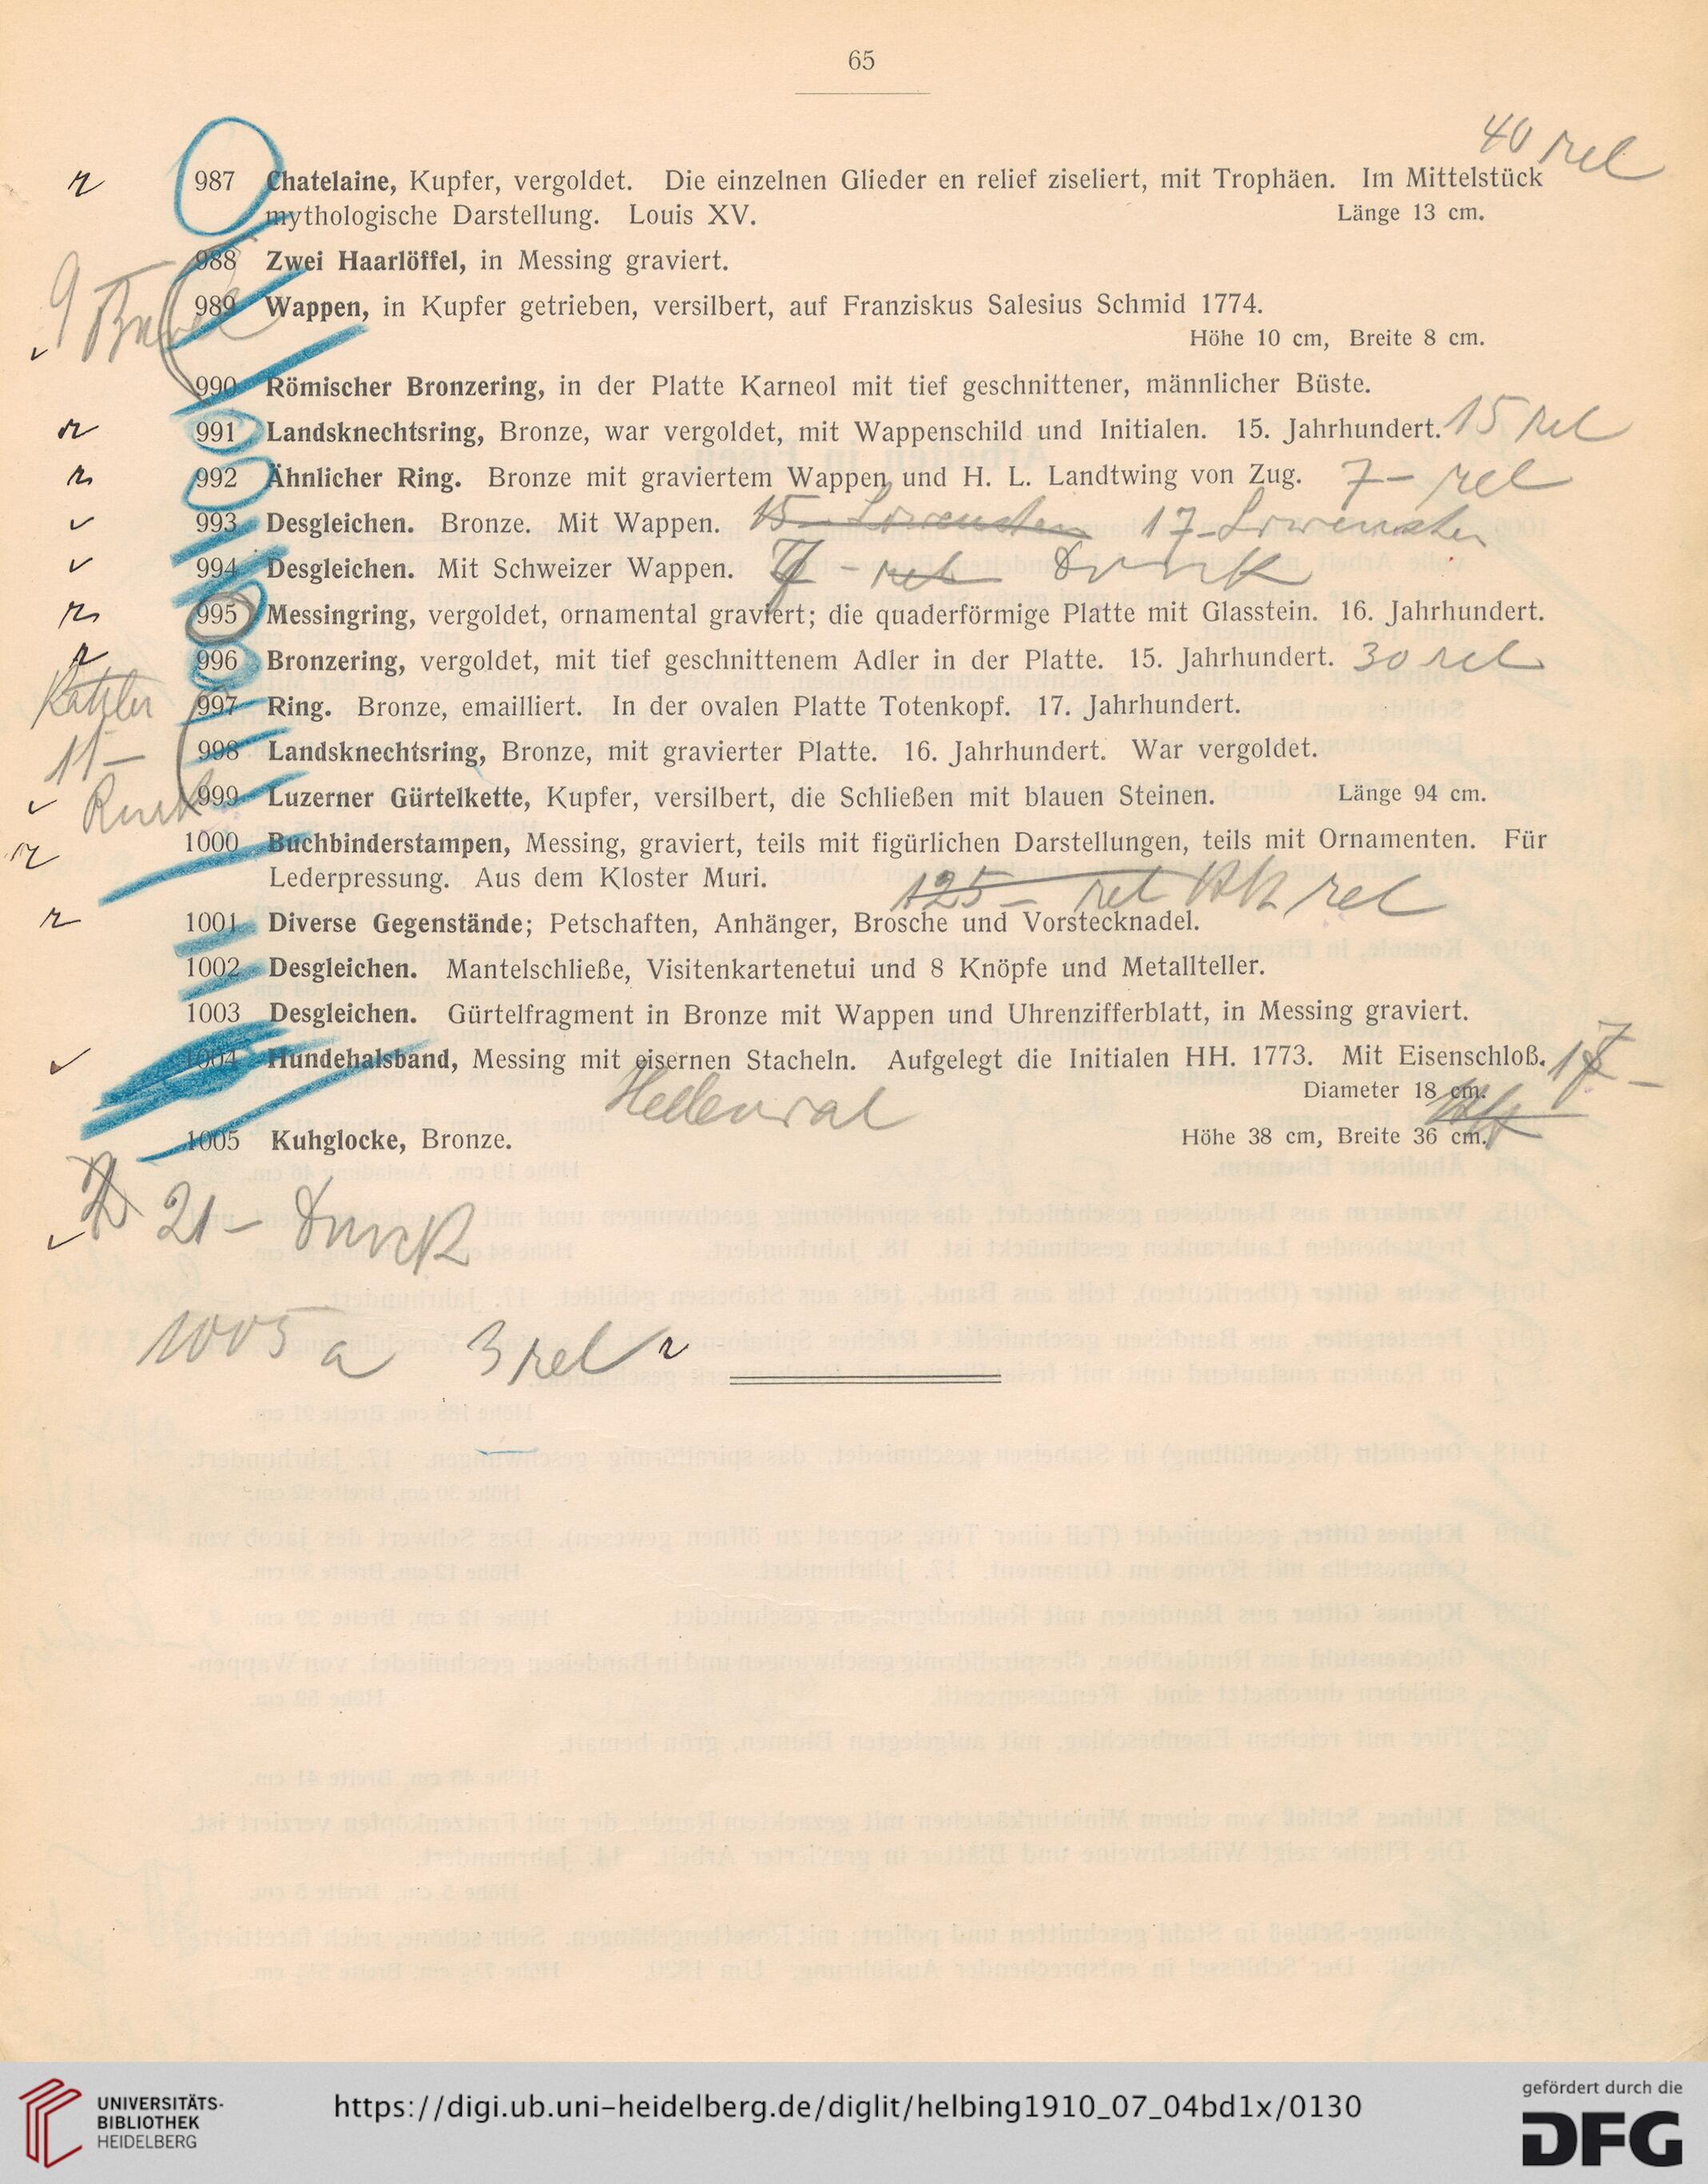 65
40 rel
987 Chatelaine, Kupfer, vergoldet. Die einzelnen Glieder en relief ziseliert, mit Trophäen. Im Mittelstück
mythologische Darstellung. Louis XV. Länge 13 cm.
988 Zwei Haarlöffel, in Messing graviert.
9
989 Wappen, in Kupfer getrieben, versilbert, auf Franziskus Salesius Schmid 1774.
Höhe 10 cm, Breite 8 cm.
990 Römischer Bronzering, in der Platte Karneol mit tief geschnittener, männlicher Büste.
991 Landsknechtsring, Bronze, war vergoldet, mit Wappenschild und Initialen. 15. Jahrhundert. 15 rel
992 Ähnlicher Ring. Bronze mit graviertem Wappen und H. L. Landtwing von Zug. 7- rel
993 Desgleichen. Bronze. Mit Wappen. 15- 17-
994 Desgleichen. Mit Schweizer Wappen. - rel
995 Messingring, vergoldet, ornamental graviert; die quaderförmige Platte mit Glasstein. 16. Jahrhundert.
996 Bronzering, vergoldet, mit tief geschnittenem Adler in der Platte. 15. Jahrhundert. 30 rel
997 Ring. Bronze, emailliert. In der ovalen Platte Totenkopf. 17. Jahrhundert.
11-
998 Landsknechtsring, Bronze, mit gravierter Platte. 16. Jahrhundert. War vergoldet.
999 Luzerner Gürtelkette, Kupfer, versilbert, die Schließen mit blauen Steinen. Länge 94 cm.
1000 Buchbinderstampen, Messing, graviert, teils mit figürlichen Darstellungen, teils mit Ornamenten. Für
Lederpressung. Aus dem Kloster Muri. 125- rel rel
1001 Diverse Gegenstände; Petschaften, Anhänger, Brosche und Vorstecknadel.
1002 Desgleichen. Mantelschließe, Visitenkartenetui und 8 Knöpfe und Metallteller.
1003 Desgleichen. Gürtelfragment in Bronze mit Wappen und Uhrenzifferblatt, in Messing graviert.
1004 Hundehalsband, Messing mit eisernen Stacheln. Aufgelegt die Initialen HH. 1773. Mit Eisenschloß.
Diameter 18 cm.
1005 Kuhglocke, Bronze. Höhe 38 cm, Breite 36 cm.
21-
1005 a 3 rel
UNIVERSITÄTS-
BIBLIOTHEK
HEIDELBERG
https://digi.ub.uni-heidelberg.de/diglit/helbing1910_07_04bd1x/0130
gefördert durch die
DFG